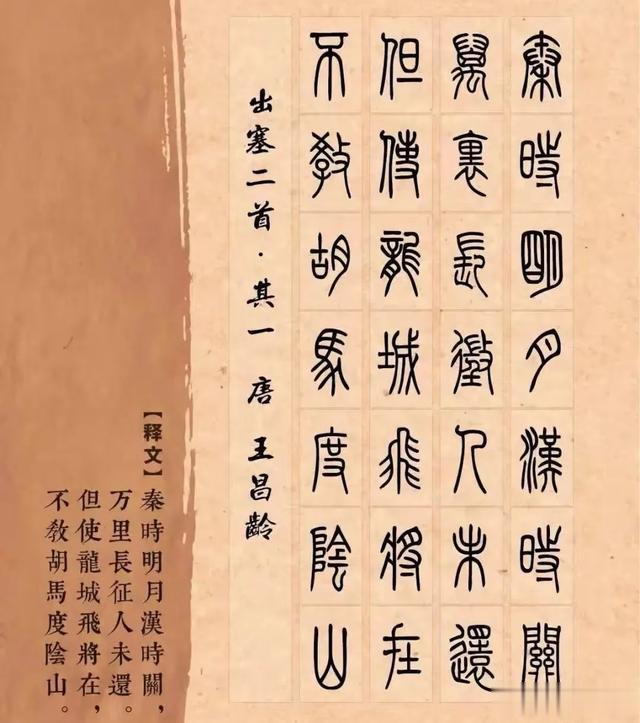 秦時明月漢時關
萬裏長徵人未還
但使龍城飛將在
不教胡馬度陰山
出塞二首·其一 唐 王昌齡
【释文】秦時明月漢時關，
万里長征人未還。
但使龍城飛將在，
不教胡馬度陰山。